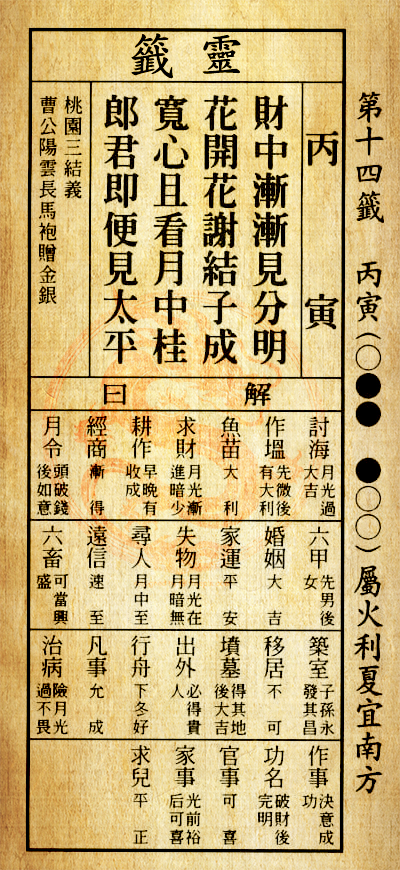 第十四籤 丙寅(○●● ●○○)屬火利夏宜南方
靈籤
丙寅
財中漸漸見分明
花開花謝結子成
寬心且看月中桂
郎君即便見太平
桃園三結義
曹公陽雲長馬袍贈金銀
解曰
討海 月光過大吉
作塭 先微後有大利
魚苗 大利
求財 月光漸進暗少
耕作 早晚有收成
經商 漸得
月令 頭破錢後如意
六甲 先男後女
婚姻 大吉
家運 平安
失物 月光在月暗無
尋人 月中至
遠信 速至
六畜 可當興盛
築室 子孫永發其昌
移居 不可
墳墓 得其地後大吉
出外 必得貴人
行舟 下冬好
凡事 允成
治病 險月光過不畏
作事 決意成功
功名 破財後完明
官事 可喜
家事 光前裕后可喜
求兒 平正